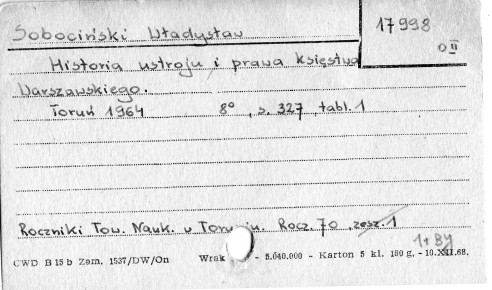 Sobociński Władysław
17998
O II
Historia ustroju i prawa księstwa
Warszawskiego.
Toruń 1964 8°, s. 327, tabl. 1
Roczniki Tow. Nauk. w Toruniu. Rocz. 70, zesz. 1
1+By
CWD B 15 b Zam. 1537/DW/On Wrak - 5.040.000 - Karton 5 kl. 180 g. - 10.XII.68.